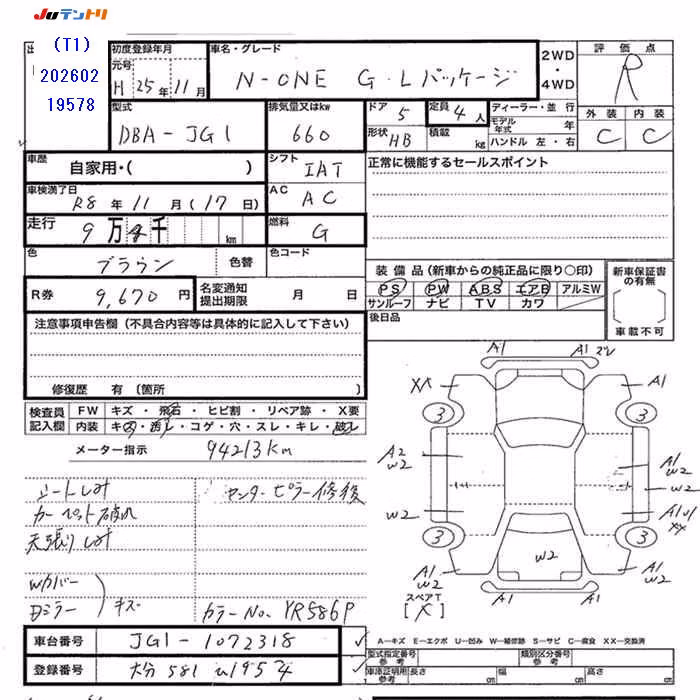 Juテントリ
出 (T1)
202602
19578
初度登録年月
元号
H 25年 11月
車名・グレード
N-ONE G・Lパッケージ
2WD
・
4WD
評価点
R
型式
DBA-JG1
排気量又はkw
660
ドア 5
定員 4人
形状 HB
積載 kg
ディーラー・並行
モデル年式 年
ハンドル 左・右
外装 内装
C C
車歴
自家用・( )
シフト
IAT
正常に機能するセールスポイント
車検満了日
R8年 11月 (17日)
AC
AC
走行
9万4千 km
燃料
G
色
ブラウン 色替
色コード
R券 9,670円
名変通知
提出期限 月 日
装備品(新車からの純正品に限り○印)
PS PW ABS エアB アルミW
サンルーフ ナビ TV カワ
新車保証書
の有無
車載不可
後日品
注意事項申告欄(不具合内容等は具体的に記入して下さい)
修復歴 有(箇所 )
検査員
記入欄
FW キズ・飛石・ヒビ割・リペア跡・X要
内装 キズ・汚レ・コゲ・穴・スレ・キレ・破レ
メーター指示 94213km
シートしみ センターピラー修復
カーペット破れ
天張りしみ
Wカバー
Dミラー キズ
カラーNo. YR586P
A1 A1
XX A1
3 3
A2
W2
A1
W2
W2
W2
W2
3 3
A1 A1
W2
A1 A1
スペアT
[X]
車台番号 JG1-1072318
登録番号 大分 581
A-キズ E-エクボ U-凹み W-補修跡 S-サビ C-腐食 XX-交換済
型式指定番号
参考
類別区分番号
参考
車庫証明用
参考
長さ cm 幅 cm 高さ cm